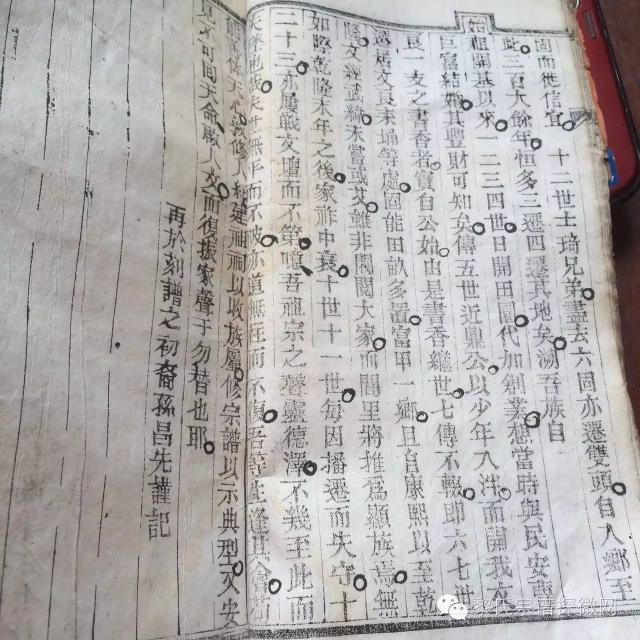 固而無信宜 十二世士琦兄弟遷去六固亦遷雙頭自入鄉至
此三百大餘年恒多三遷四遷其地矣溯吾族自
始祖開基以來一二三四世日開田園代加創業想當時與民安
巨富結婚其豐財可知矣傳五世近里公以少年入泮而蘭我
良一支之書香者實自公始由是書香繼世七傳不輟即六七世
處固能田畝多置富甲一鄉且自康熙以至乾
隆文經武緯未嘗或雖非閥閱大家而閭里將推為顯族焉無
如際乾隆末年之後家祚中衰十世十一世每因播遷而失守十
二十三亦屢戰文壇而不第噫吾祖宗之聲靈德澤不幾至此而
無平而不陂亦道無往而不復吾
天心敦修建祠以收族屬修宗譜以示典型又安
見不可回天命啟人文而復振家聲于勿替也耶
再於刻譜之初裔孫昌先謹記